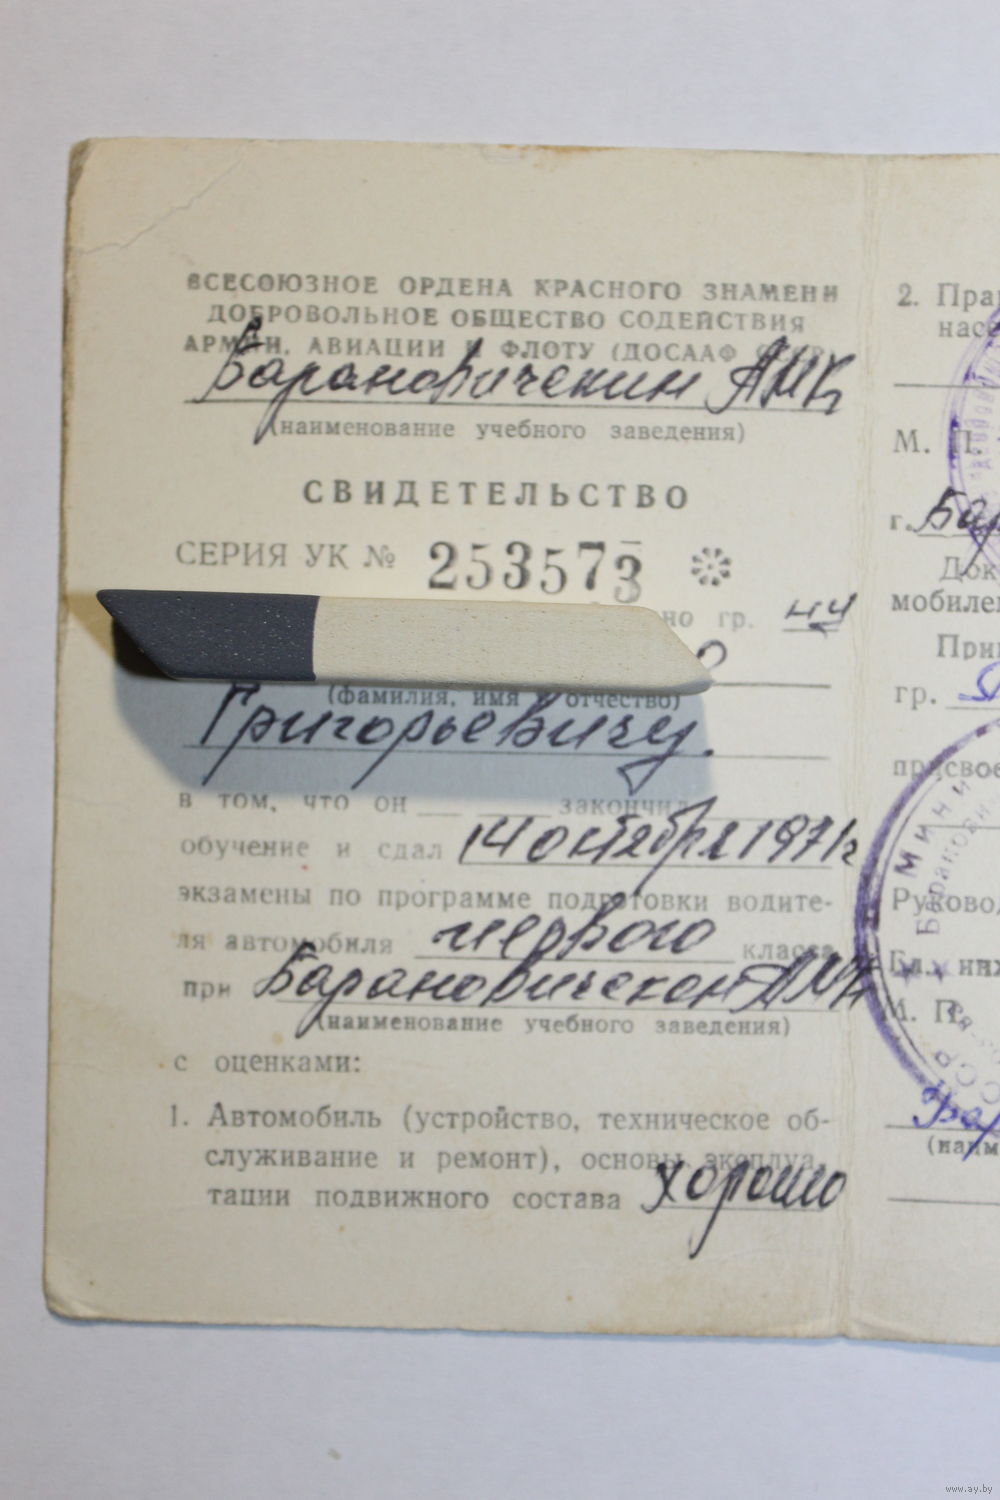 ВСЕСОЮЗНОЕ ОРДЕНА КРАСНОГО ЗНАМЕНИ
ДОБРОВОЛЬНОЕ ОБЩЕСТВО СОДЕЙСТВИЯ
АРМИИ, АВИАЦИИ И ФЛОТУ (ДОСААФ
Барановический АМК
(наименование учебного заведения)
СВИДЕТЕЛЬСТВО
СЕРИЯ УК № 253573
но гр.
(фамилия, имя отчество)
Григорьевичу.
в том, что он закончил
обучение и сдал 14 октября 1971г
экзамены по программе подготовки водите-
ля автомобиля первого класса
при Барановической АМК
(наименование учебного заведения)
с оценками:
1. Автомобиль (устройство, техническое об-
служивание и ремонт), основы эксплуа
тации подвижного состава хорошо
2. Пра
насе
М. П.
г. Бар
Док
мобилем
При
гр.
присвое
Руковод
Гл. инж
М. П.
(наим
www.ay.by